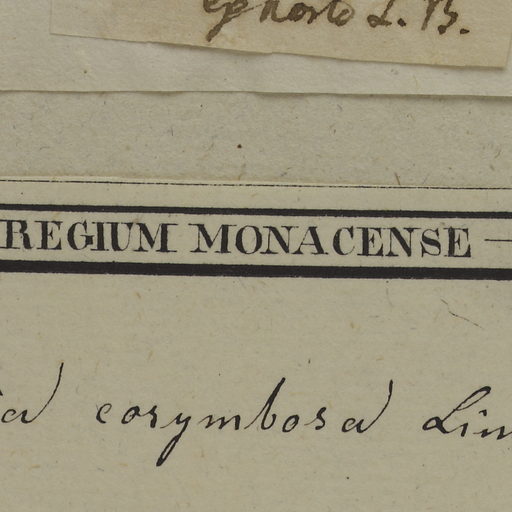 ex horto L. B.
REGIUM MONACENSE —
a corymbosa Lin